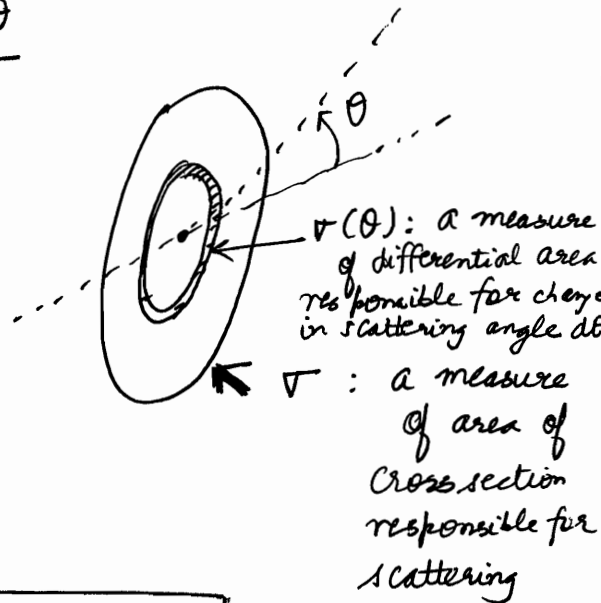 θ
θ
σ(θ): a measure
of differential area
responsible for change
in scattering angle dθ
σ : a measure
of area of
cross section
responsible for
scattering